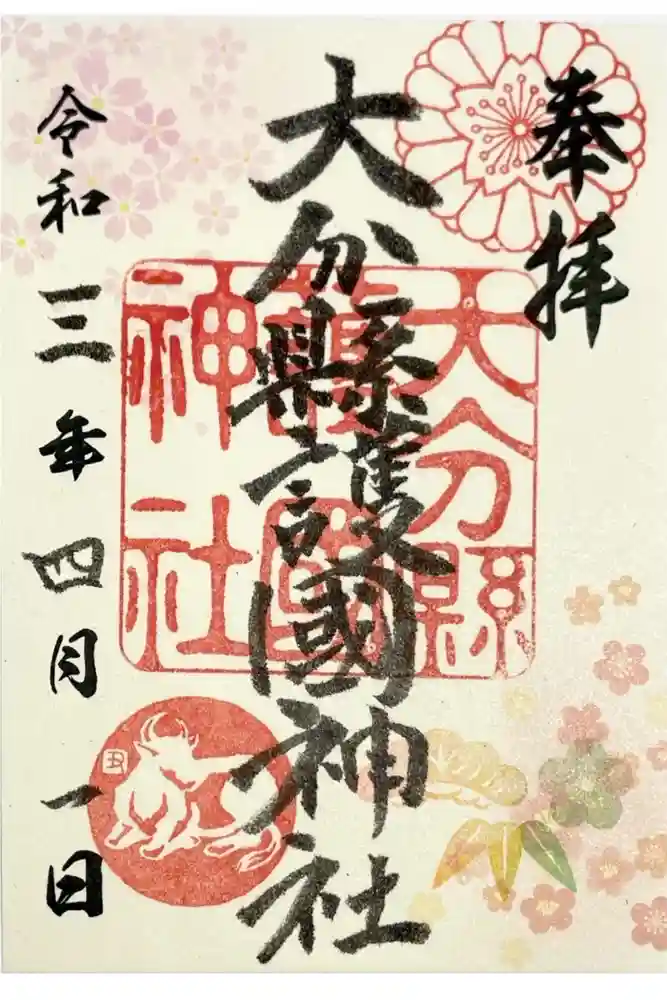 奉拝
大分縣護國神社
大分縣
護國
神社
令和三年四月一日
丑